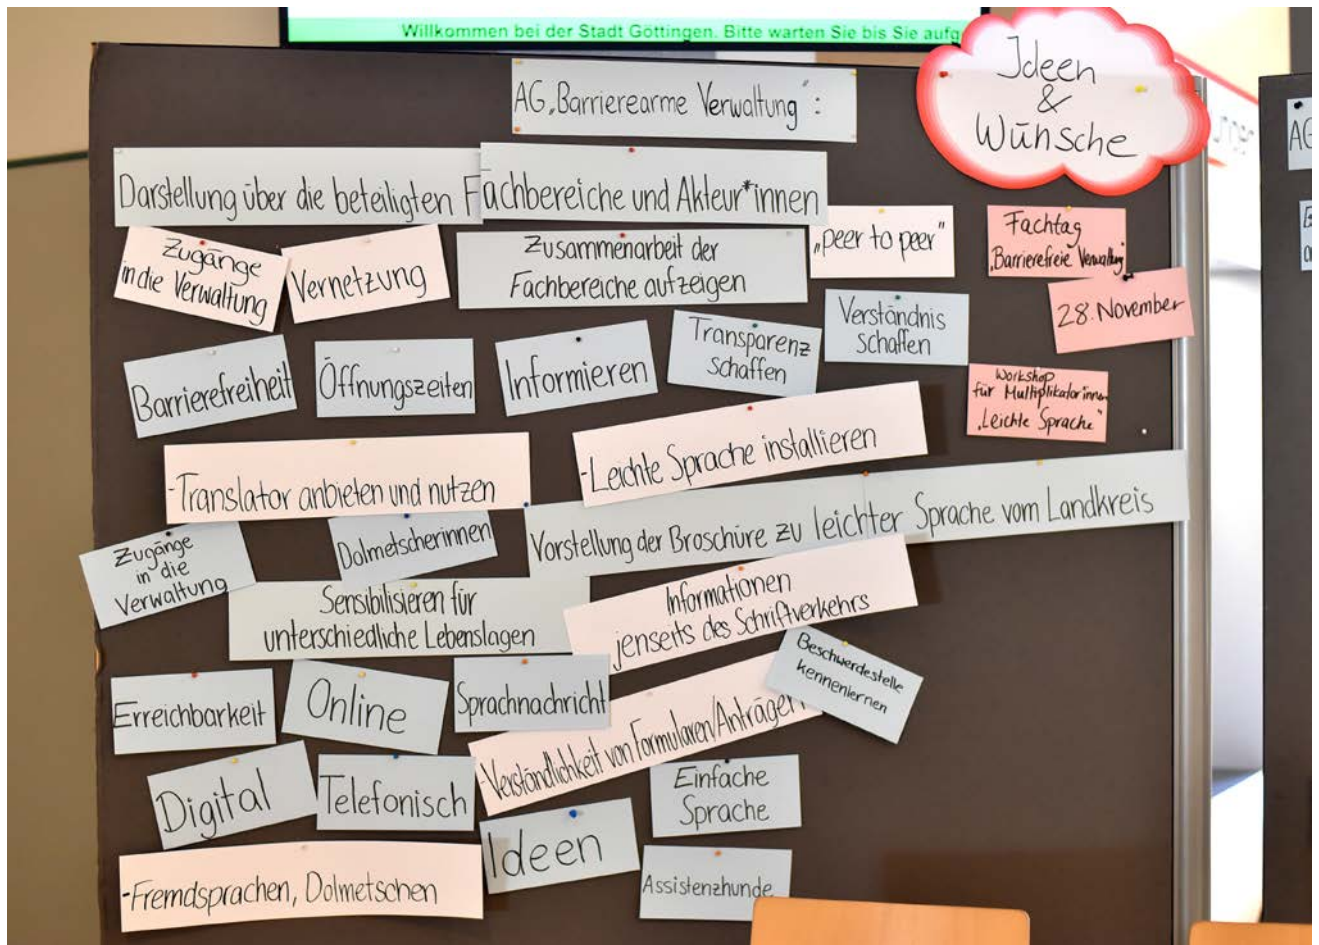 Willkommen bei der Stadt Göttingen. Bitte warten Sie bis Sie aufg
Ideen
&
Wünsche
AG „Barrierearme Verwaltung“:
AG
Darstellung über die beteiligten Fachbereiche und Akteur*innen
Zugänge
in die Verwaltung
Vernetzung
Zusammenarbeit der
Fachbereiche aufzeigen
„peer to peer“
Fachtag
„Barrierefreie Verwaltung“
28. November
Barrierefreiheit
Öffnungszeiten
Informieren
Transparenz
schaffen
Verständnis
schaffen
Workshop
für Multiplikator:innen
„Leichte Sprache“
-Translator anbieten und nutzen
-Leichte Sprache installieren
Zugänge
in die
Verwaltung
Dolmetscherinnen
Vorstellung der Broschüre zu leichter Sprache vom Landkreis
Sensibilisieren für
unterschiedliche Lebenslagen
Informationen
jenseits des Schriftverkehrs
Beschwerdestelle
kennenlernen
Erreichbarkeit
Online
Sprachnachricht
-Verständlichkeit von Formularen/Anträgen
Digital
Telefonisch
Einfache
Sprache
Ideen
-Fremdsprachen, Dolmetschen
Assistenzhunde